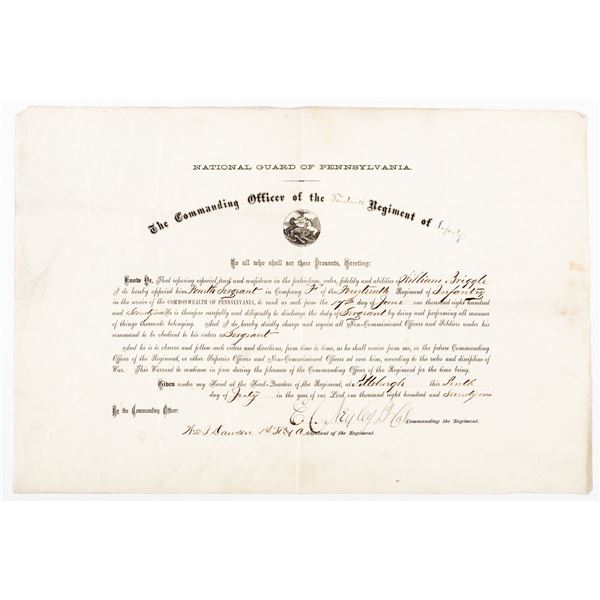 NATIONAL GUARD OF PENNSYLVANIA.
The Commanding Officer of the Regiment of Infantry
To all who shall see these Presents, Greeting:
Know Ye, That reposing especial trust and confidence in the patriotism, valor, fidelity and abilities William Briggle
I do hereby appoint him Fourth Sergeant in Company F of the Regiment of Infantry
in the service of the COMMONWEALTH OF PENNSYLVANIA, to rank as such from the 17th day of June one thousand eight hundred
and Seventy one He is therefore carefully and diligently to discharge the duty of Sergeant by doing and performing all manner
of things thereunto belonging. And I do hereby strictly charge and require all Non-Commissioned Officers and Soldiers under his
command to be obedient to his orders as Sergeant
And he is to observe and follow such orders and directions, from time to time, as he shall receive from me, or the future Commanding
Officer of the Regiment, or other Superior Officers and Non-Commissioned Officers set over him, according to the rules and discipline of
War. This Warrant to continue in force during the pleasure of the Commanding Officer of the Regiment for the time being.
Given under my Hand at the Head-Quarters of the Regiment, at Pittsburgh this Tenth
day of July in the year of our Lord, one thousand eight hundred and Seventy one
By the Commanding Officer:
Commanding the Regiment.
Dawson 1st Adjutant of the Regiment.